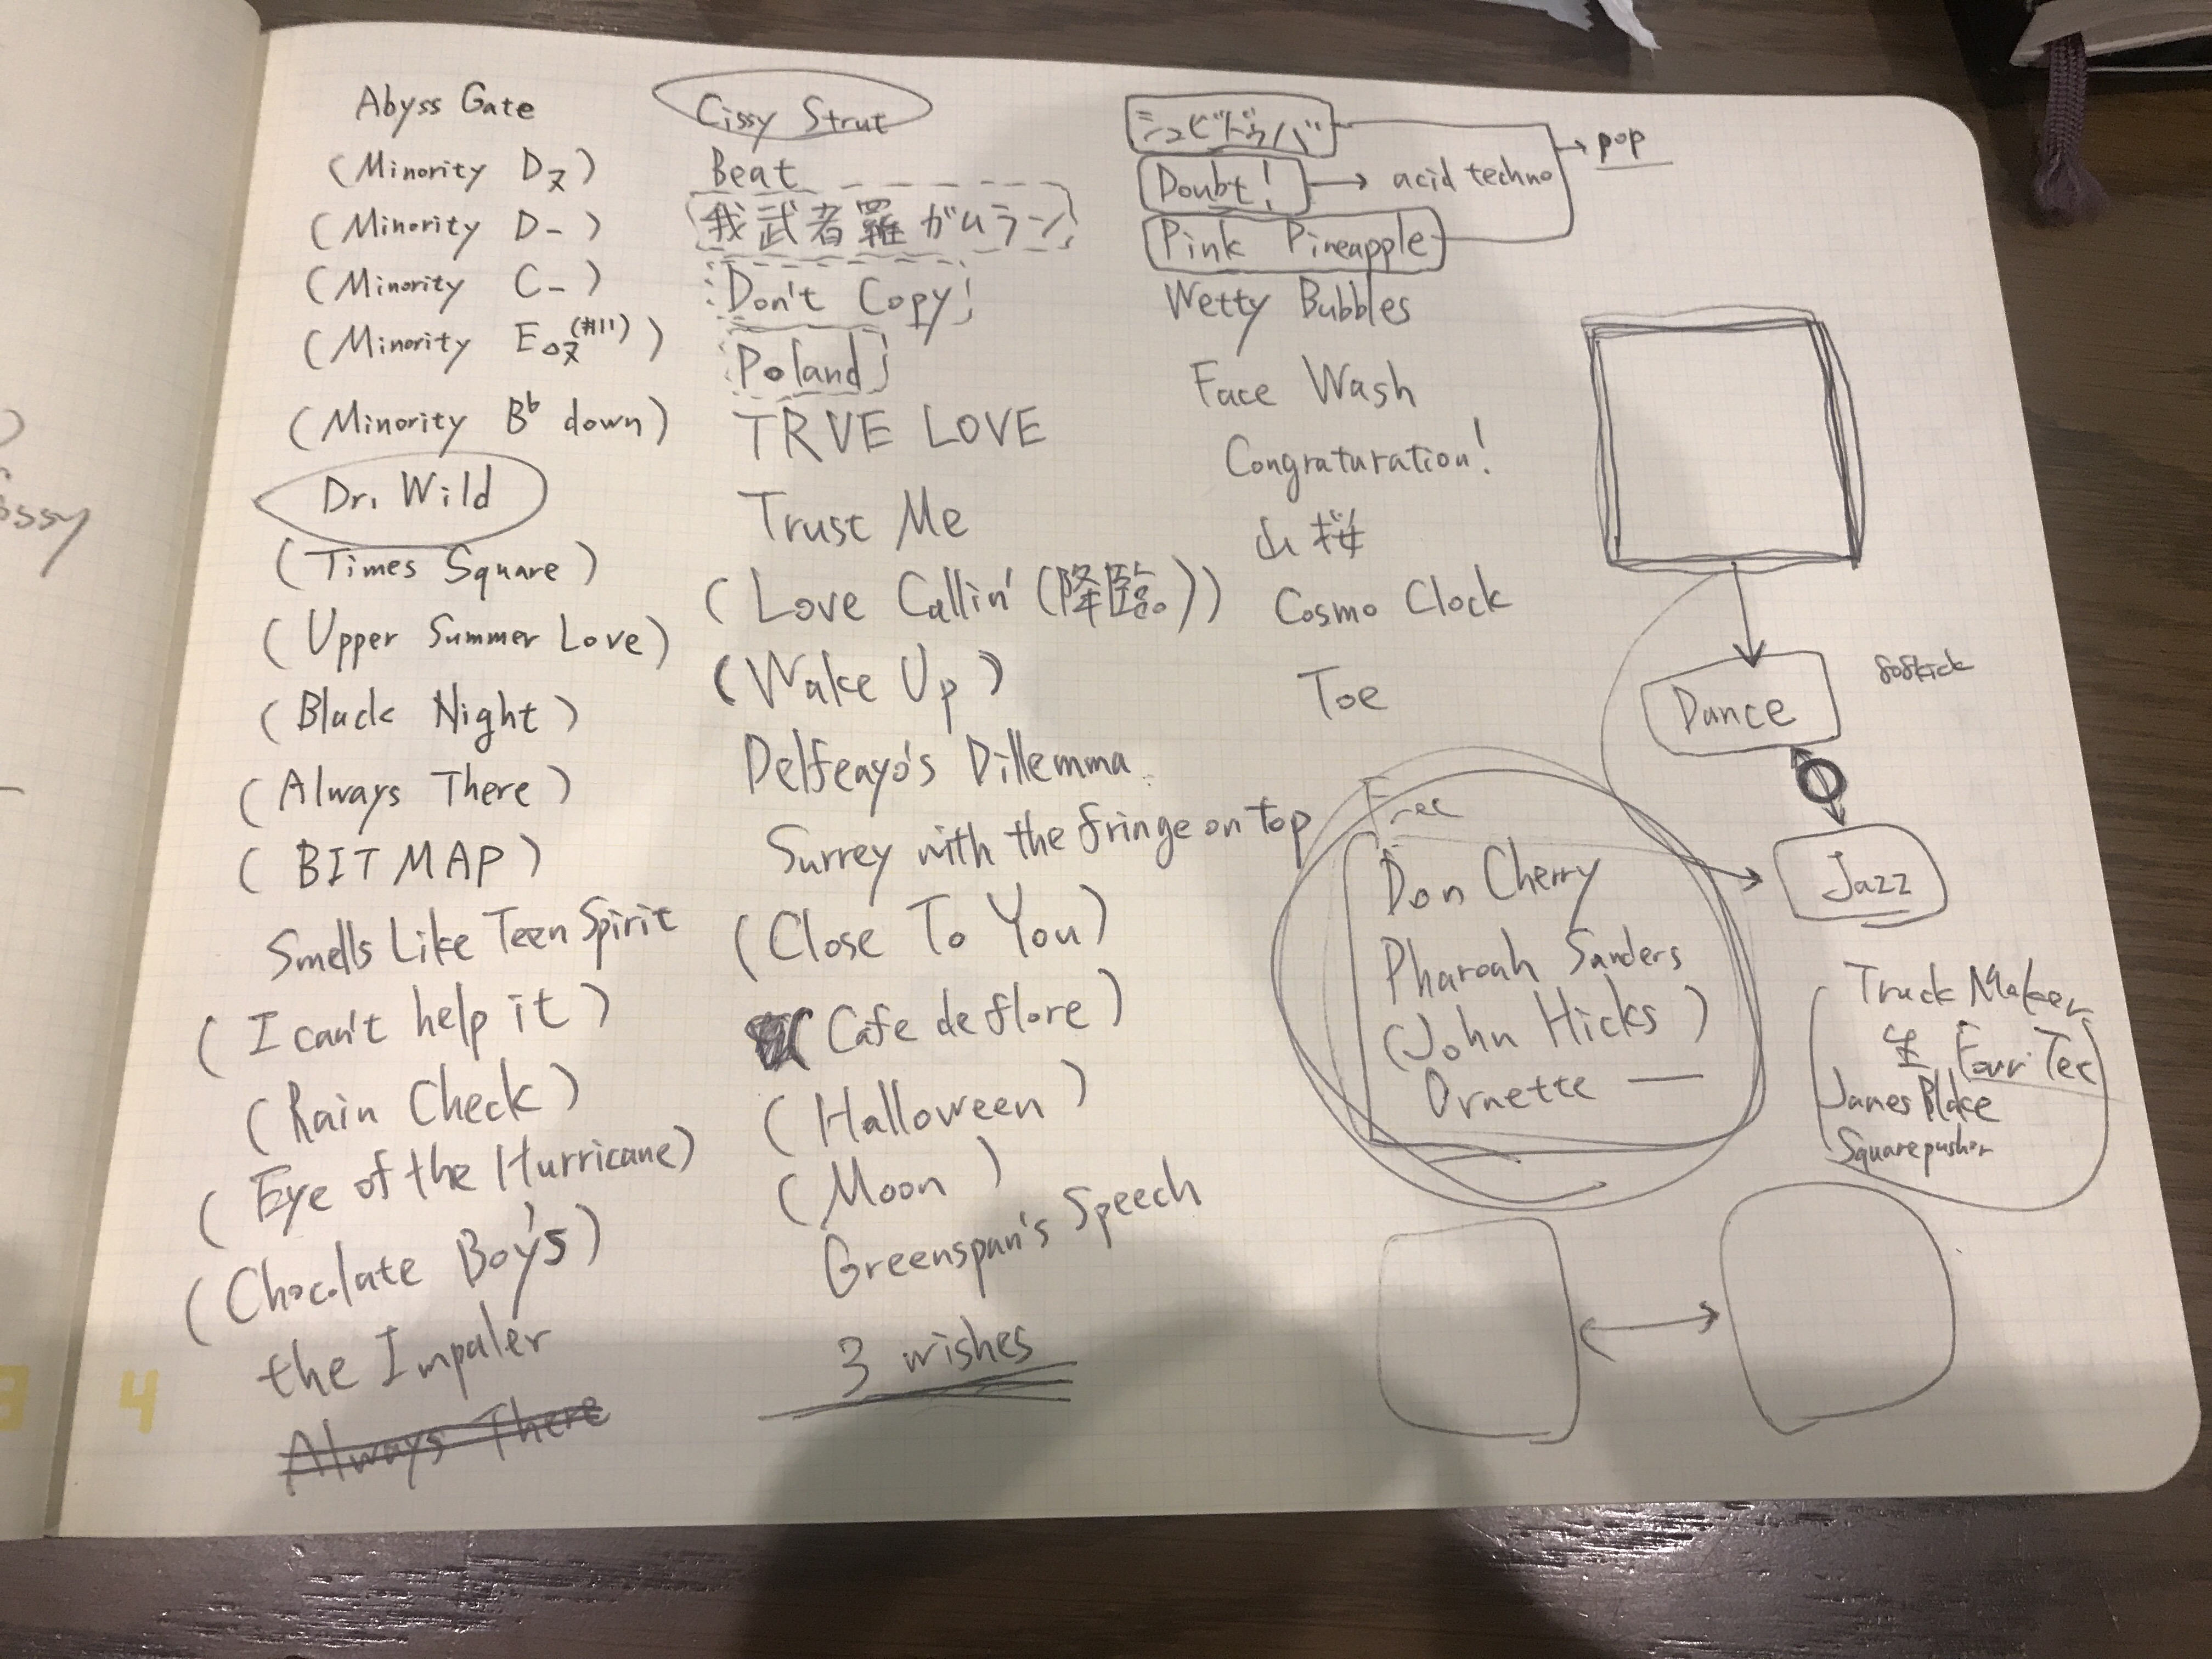 Abyss Gate
(Minority D7)
(Minority D-)
(Minority C-)
(Minority E△7(#11))
(Minority B♭ down)
Dr. Wild
(Times Square)
(Upper Summer Love)
(Black Night)
(Always There)
(BIT MAP)
Smells Like Teen Spirit
(I can't help it)
(Rain Check)
(Eye of the Hurricane)
(Chocolate Boy's)
the Impaler
Always There
Cissy Strut
Beat
我武者羅ガムラン
Don't Copy!
Poland
TRVE LOVE
Trust Me
(Love Callin' (降臨。))
(Wake Up)
Delfeayo's Dillemma
Surrey with the fringe on top
(Close To You)
(Cafe de flore)
(Halloween)
(Moon)
Greenspan's Speech
3 wishes
シュビドゥバ
Doubt! → acid techno
→ pop
Pink Pineapple
Wetty Bubbles
Face Wash
Congraturation!
山桜
Cosmo Clock
Toe
Dance
Jazz
Free
Don Cherry
Pharoah Sanders
(John Hicks)
Ornette —
Truck Maker
生 Four Tet
James Blake
Squarepusher
ossy
3
4